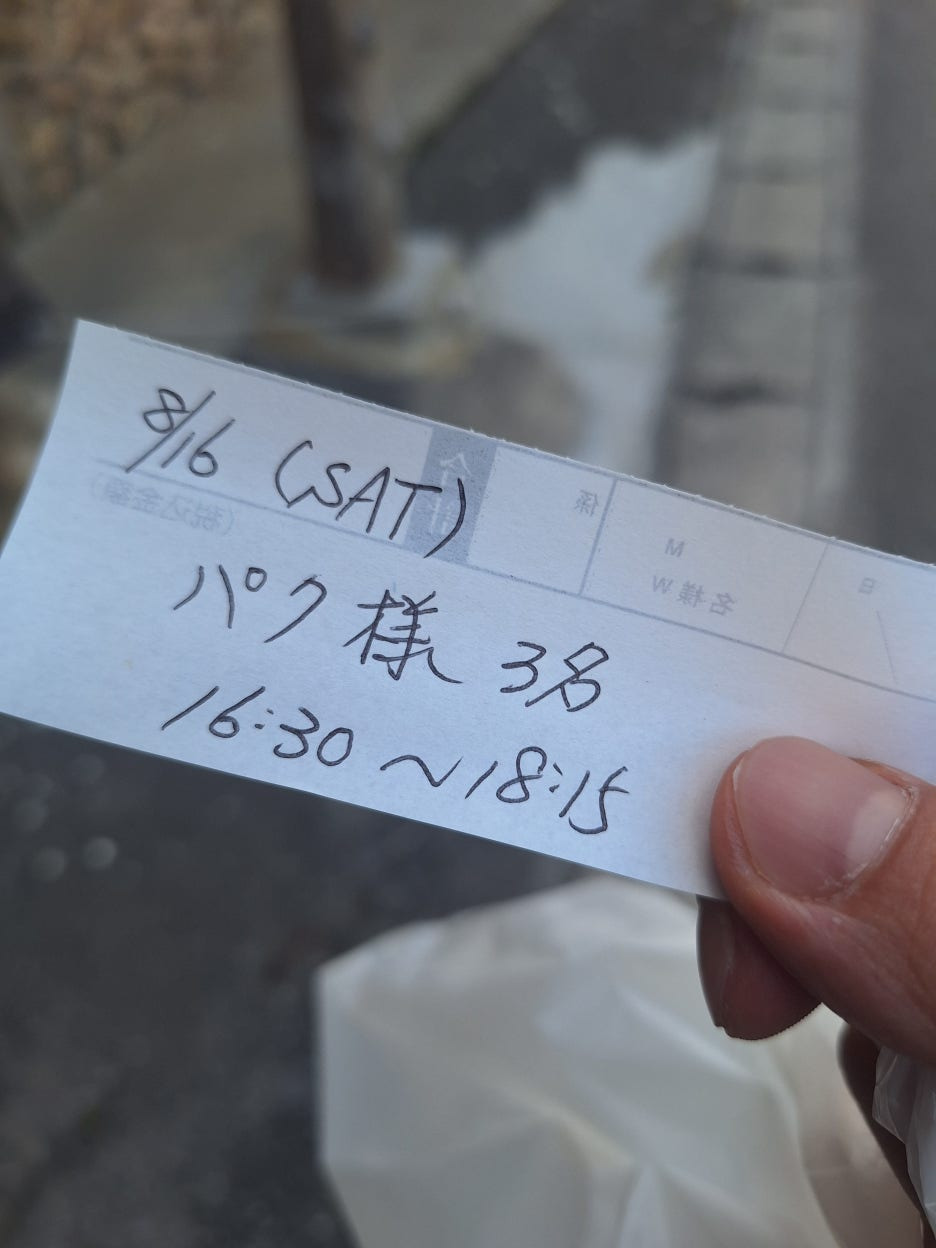 8/16 (SAT)
パク様 3名
16:30 〜 18:15
係
M
W 名様
日
(税込金額)